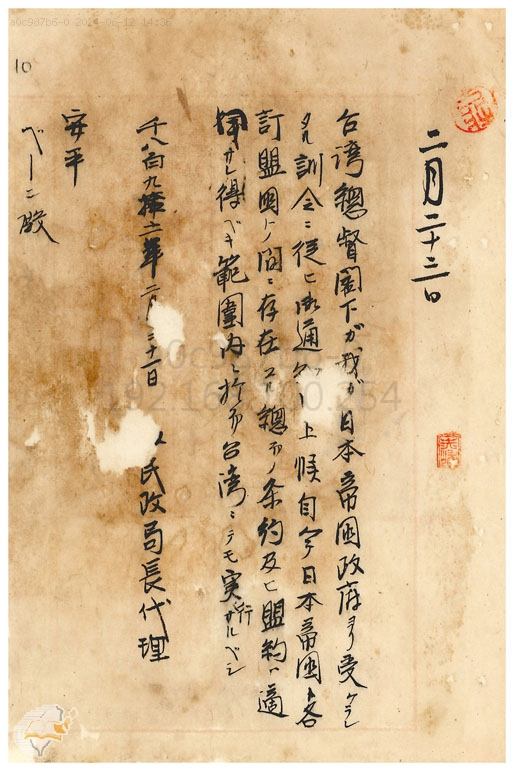 10
二月二十三日
台湾總督閣下ガ我ガ日本帝国政府ヨリ受ケラレ
タル訓令ニ從ヒ御通知 上候自今日本帝国ト各
訂盟国トノ間ニ存在スル總テノ条約及ヒ盟約ハ適
用サレ得ベキ範囲内ニ於テ台湾ニテモ実行サルベシ
千八百九拾六年二月二十一日
民政局長代理
安平
ベーン殿